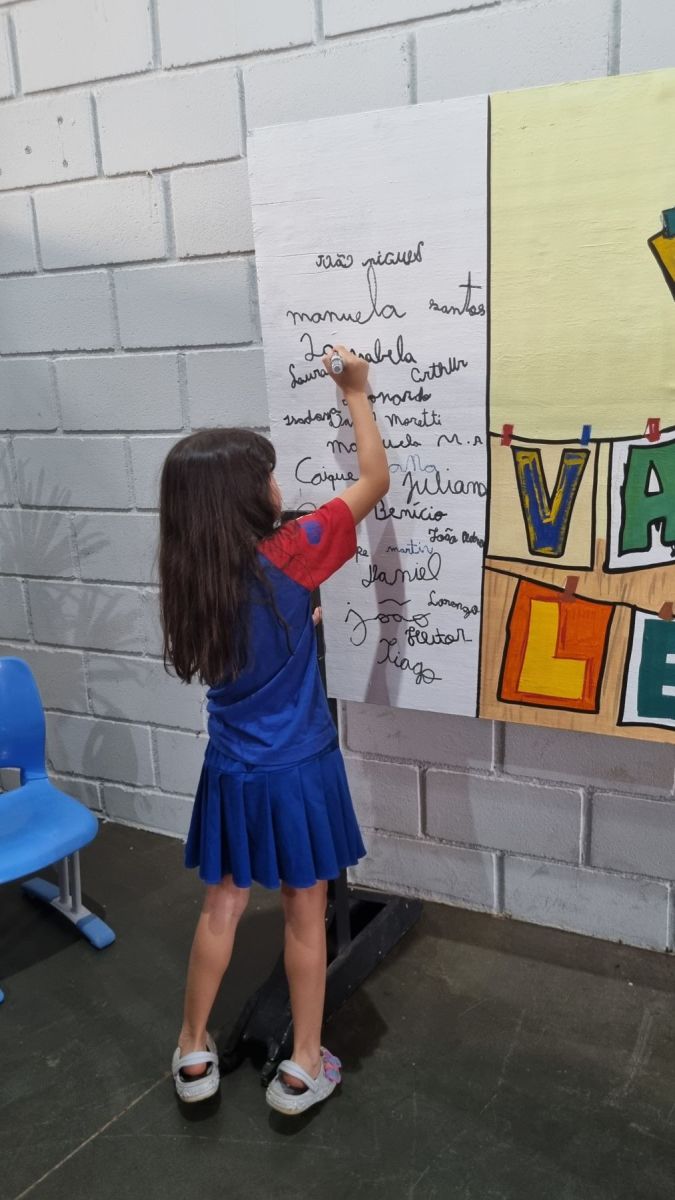 João Miguel
manuela santos
Isabela
Laura Arthur
Leonardo
Isadora Moretti
manuela M.R
Caique ana Juliana
Benício
João Pedro
martin
Daniel
Lorenzo
João
Heitor
Tiago
VA
LE